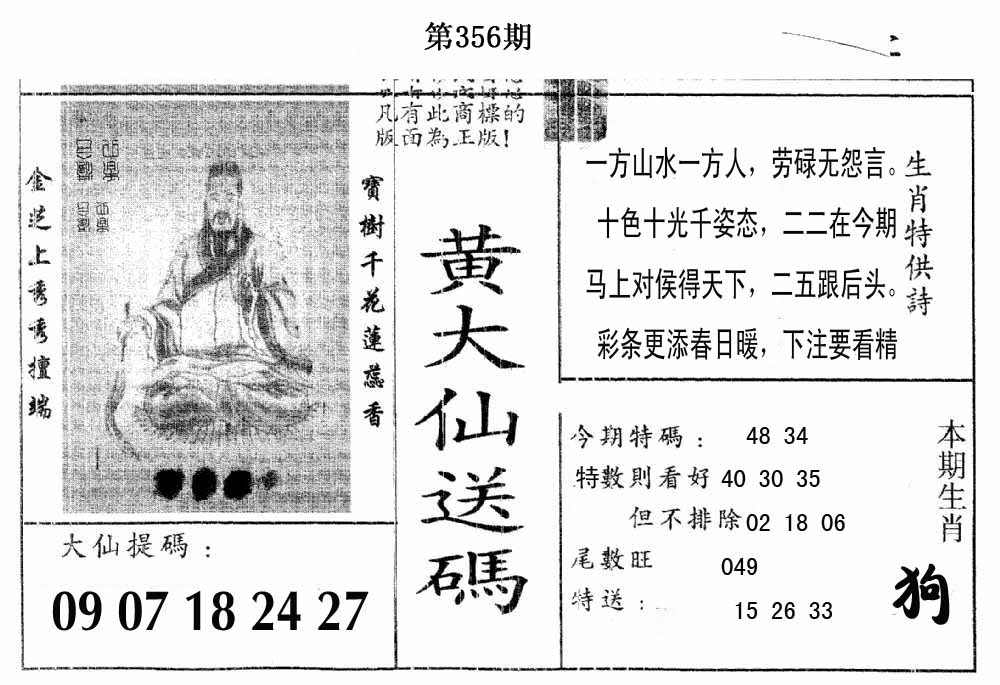 第356期
凡有此商標的
版面為正版!
寶樹千花蓮蕊香
金
上
大仙提碼:
09 07 18 24 27
黄大仙送碼
生肖特供詩
一方山水一方人，劳碌无怨言。
十色十光千姿态，二二在今期
马上对侯得天下，二五跟后头。
彩条更添春日暖，下注要看精
今期特碼: 48 34
特數則看好 40 30 35
但不排除 02 18 06
尾數旺 049
特送: 15 26 33
本期生肖
狗